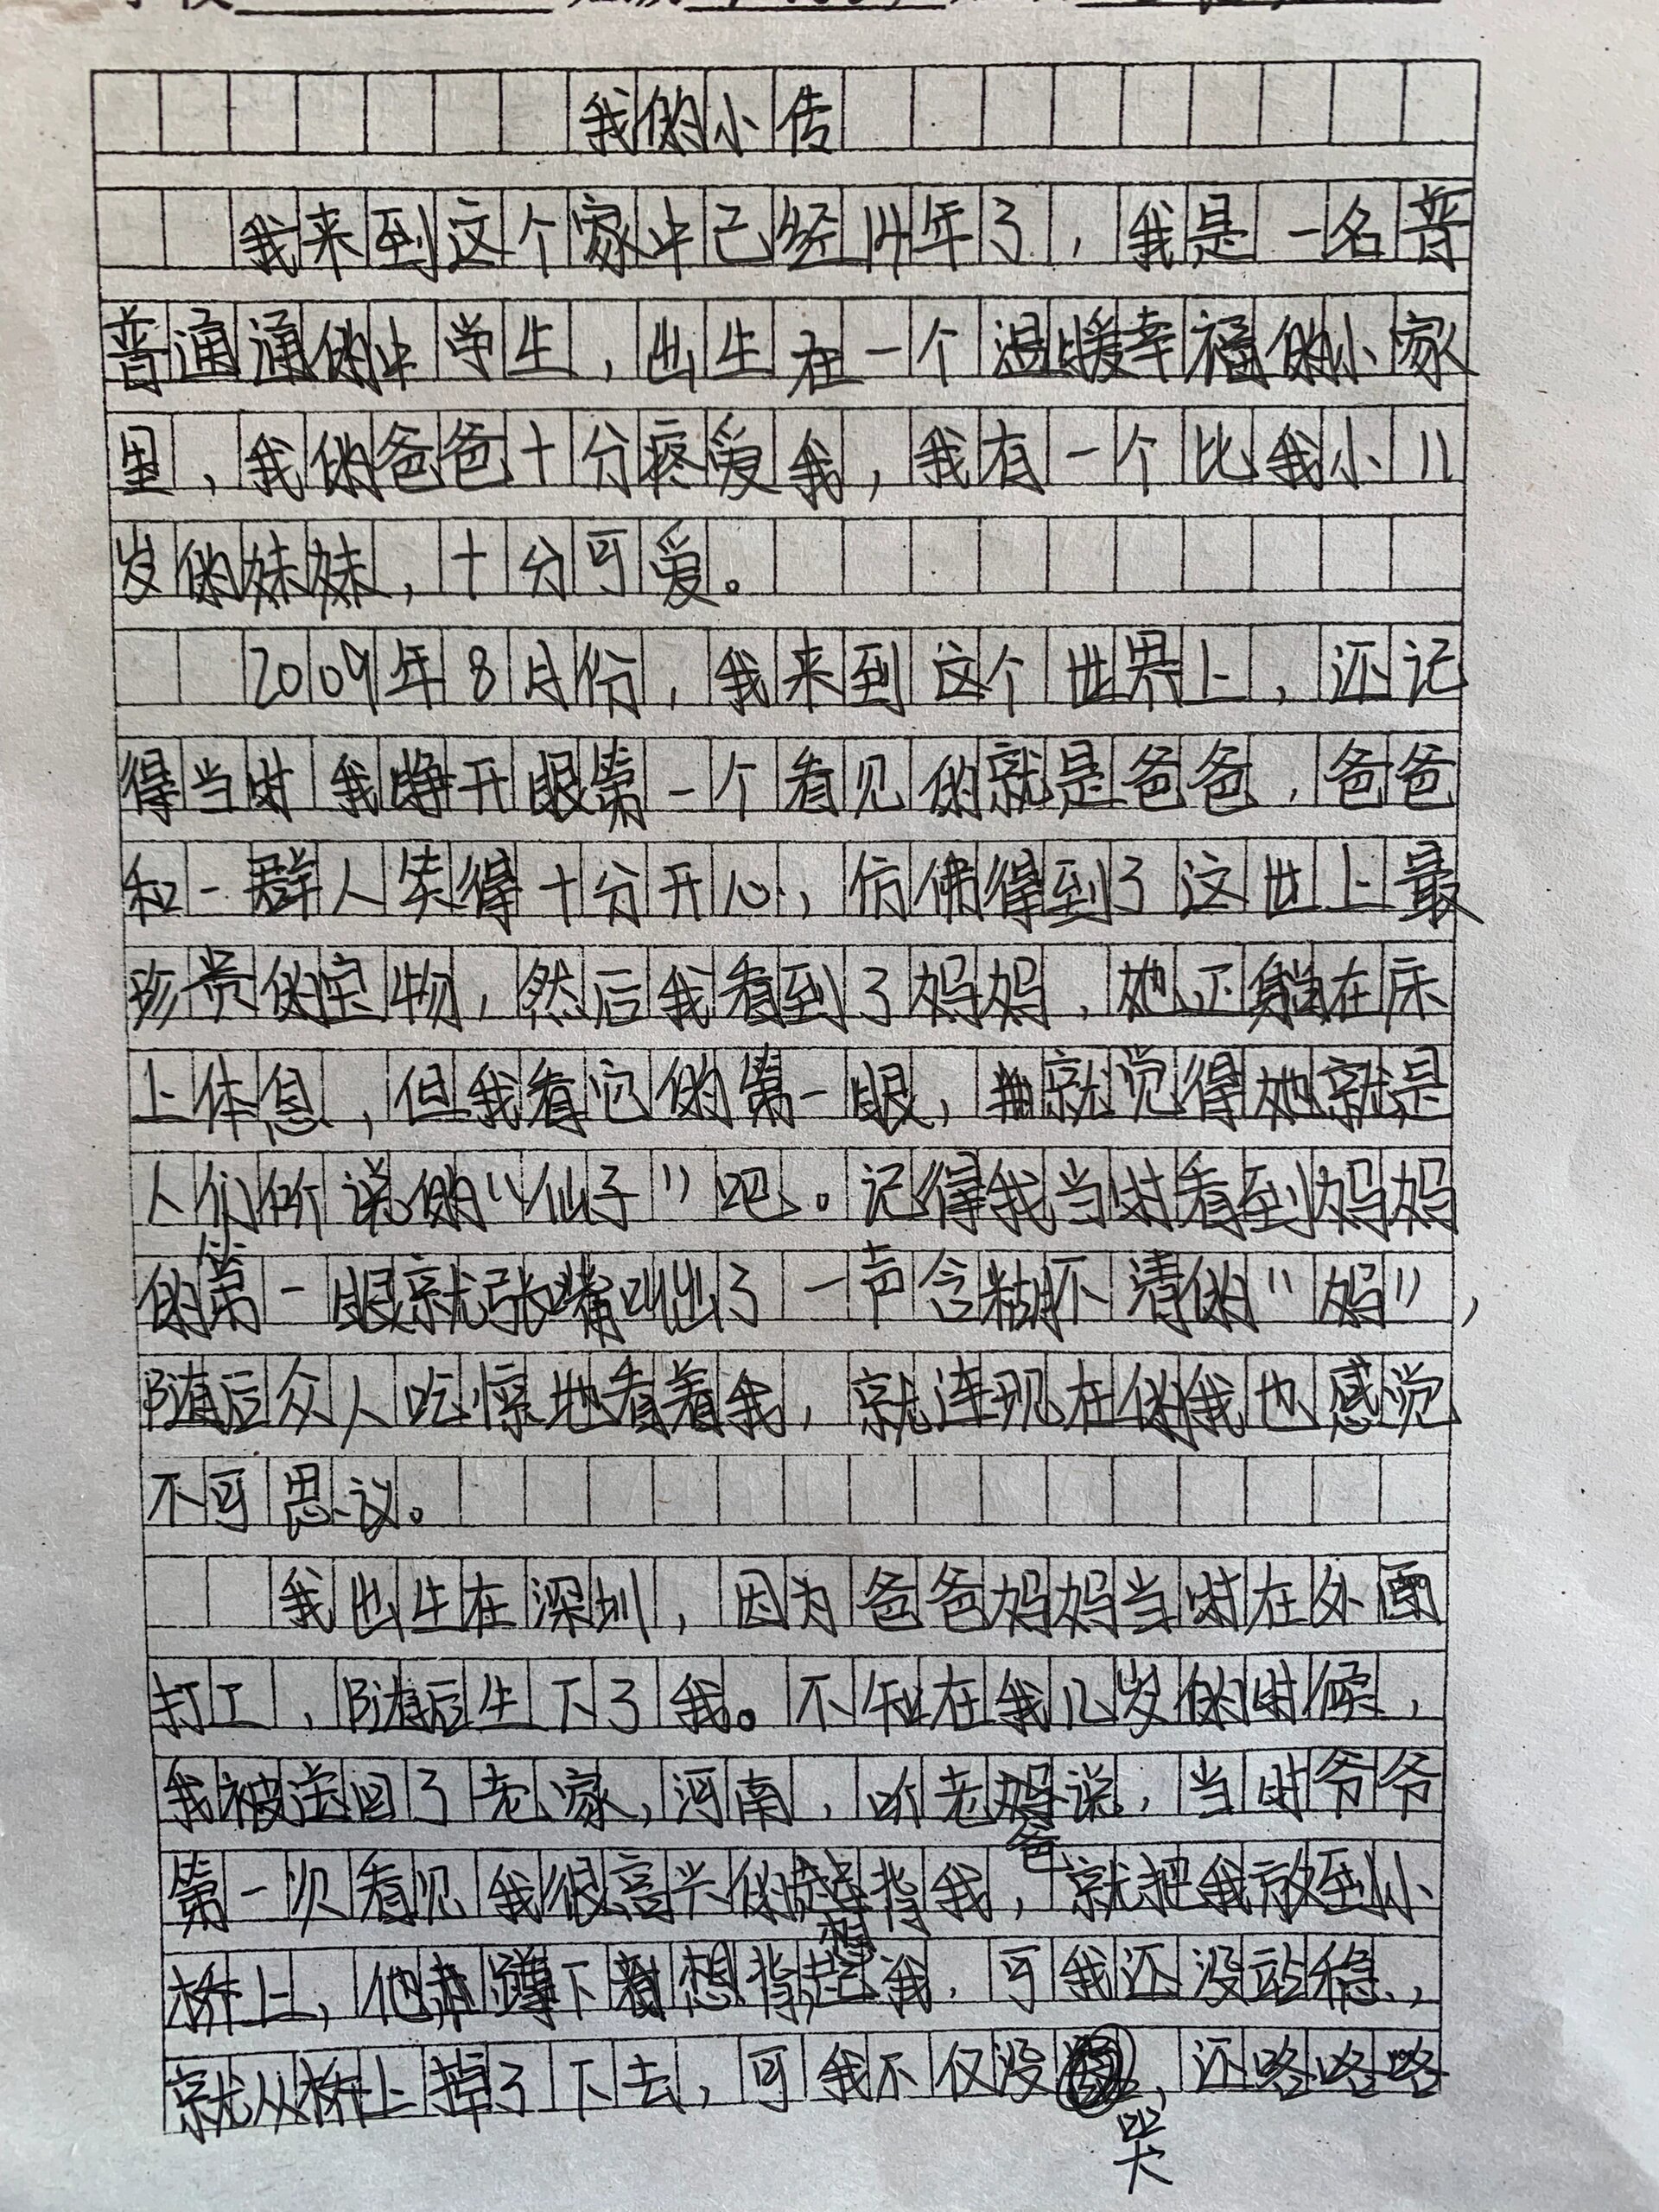 我的小传
我来到这个家中已经14年了，我是一名普
普通通的中学生，出生在一个温暖幸福的小家
里，我的爸爸十分疼爱我，我有一个比我小11
岁的妹妹，十分可爱。
2009年8月份，我来到这个世界上，还记
得当时我睁开眼第一个看见的就是爸爸，爸爸
和一群人笑得十分开心，仿佛得到了这世上最
珍贵的宝物，然后我看到了妈妈，她正躺在床
上休息，但我看它的第一眼，就觉得她就是
人们所说的"仙子"吧。记得我当时看到妈妈
的第一眼就张嘴叫出了一声含糊不清的"妈"，
随后众人吃惊地看着我，就连现在的我也感觉
不可思议。
我出生在深圳，因为爸爸妈妈当时在外面
打工，随后生下了我。不知在我几岁的时候，
我被送回了老家，河南，听老爸说，当时爷爷
第一次看见我很高兴的想背我，就把我放到小
桥上，他蹲下着想背起我，可我还没站稳，
就从桥上掉了下去，可我不仅没哭，还咯咯咯